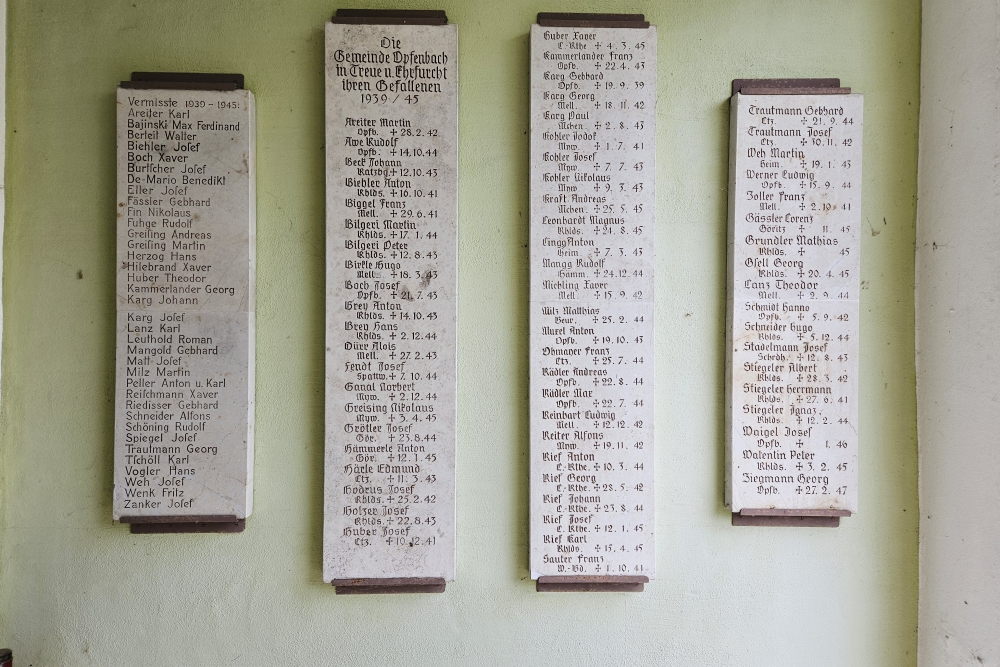 Vermisste 1939-1945:
Areiter Karl
Bajinski Max Ferdinand
Berteil Walter
Biehler Josef
Boch Xaver
Burtscher Josef
De-Mario Benedikt
Eller Josef
Fässler Gebhard
Fin Nikolaus
Fuhge Rudolf
Greising Andreas
Greising Martin
Herzog Hans
Hilebrand Xaver
Huber Theodor
Kammerlander Georg
Karg Johann
Karg Josef
Lanz Karl
Leuthold Roman
Mangold Gebhard
Matt Josef
Milz Martin
Peller Anton u. Karl
Reischmann Xaver
Riedisser Gebhard
Schneider Alfons
Schöning Rudolf
Spiegel Josef
Trautmann Georg
Tschöll Karl
Vogler Hans
Weh Josef
Wenk Fritz
Zanker Josef
Die
Gemeinde Opfenbach
in Treue u. Ehrfurcht
ihren Gefallenen
1939/45
Areiter Martin
Opfb. + 28.2.42
Awe Rudolf
Opfb. + 14.10.44
Beck Johann
Ratzbg. + 12.10.43
Biehler Anton
Rhlds. + 10.10.41
Biggel Franz
Mell. + 29.6.41
Bilgeri Martin
Rhlds. + 17.1.44
Bilgeri Peter
Rhlds. + 12.8.43
Birkle Hugo
Mell. + 18.3.43
Boch Josef
Opfb. + 21.7.43
Brey Anton
Rhlds. + 14.10.43
Brey Hans
Rhlds. + 2.12.44
Dürr Alois
Mell. + 27.2.43
Fendt Josef
Spattw. + 7.10.44
Ganal Norbert
Myw. + 2.12.44
Greising Nikolaus
Myw. + 3.4.45
Grötler Josef
Gör. + 23.8.44
Hämmerle Anton
Gör. + 12.1.45
Härle Edmund
Ltz. + 11.3.43
Hodrus Josef
Rhlds. + 25.2.42
Holzer Josef
Rhlds. + 22.8.43
Huber Josef
Ltz. + 10.12.41
Huber Xaver
L.-Rthe + 4.3.45
Kammerlander Franz
Opfb. + 22.4.43
Karg Gebhard
Opfb. + 19.9.39
Karg Georg
Mell. + 18.11.42
Karg Paul
Mchen. + 2.8.43
Kohler Jodok
Myw. + 1.7.41
Kohler Josef
Myw. + 7.7.43
Kohler Nikolaus
Myw + 9.3.43
Kraft Andreas
Mchen. + 25.5.45
Leonhardt Magnus
Rhlds. + 24.8.45
Lingg Anton
Heim. + 7.3.43
Mangg Rudolf
Hamm. + 24.12.44
Michling Xaver
Mell. + 15.9.42
Milz Matthias
Beur. + 25.2.44
Nurel Anton
Opfb. + 19.10.43
Ohmayer Franz
Ltz. + 25.7.44
Rädler Andreas
Opfb. + 22.8.44
Rädler Max
Opfb. + 22.7.44
Reinhart Ludwig
Mell. + 12.12.42
Reiter Alfons
Myw. + 19.11.42
Rief Anton
L.-Rthe. + 10.3.44
Rief Georg
L.-Rthe. + 28.5.42
Rief Johann
L.-Rthe. + 23.8.44
Rief Josef
L.-Rthe. + 12.1.45
Rief Karl
Rhlds. + 15.4.45
Sauter Franz
W.-Bd. + 1.10.41
Trautmann Gebhard
Ltz. + 21.9.44
Trautmann Josef
Ltz. + 30.11.42
Weh Martin
Heim. + 19.1.43
Werner Ludwig
Opfb. + 15.9.44
Zoller Franz
Mell. + 2.10.41
Gässler Lorenz
Göritz + 11.45
Grundler Mathias
Rhlds. + 45
Gsell Georg
Rhlds. + 20.4.45
Lanz Theodor
Mell. + 2.9.44
Schmidt Hanno
Opfb. + 5.9.42
Schneider Hugo
Rhlds. + 5.12.44
Stadelmann Josef
Schrdh. + 12.8.43
Stiegeler Albert
Rhlds. + 28.3.42
Stiegeler Herrmann
Rhlds. + 27.6.41
Stiegeler Ignaz
Rhlds. + 12.2.44
Waigel Josef
Opfb. + 1.46
Walentin Peter
Rhlds. + 3.2.45
Ziegmann Georg
Opfb. + 27.2.47